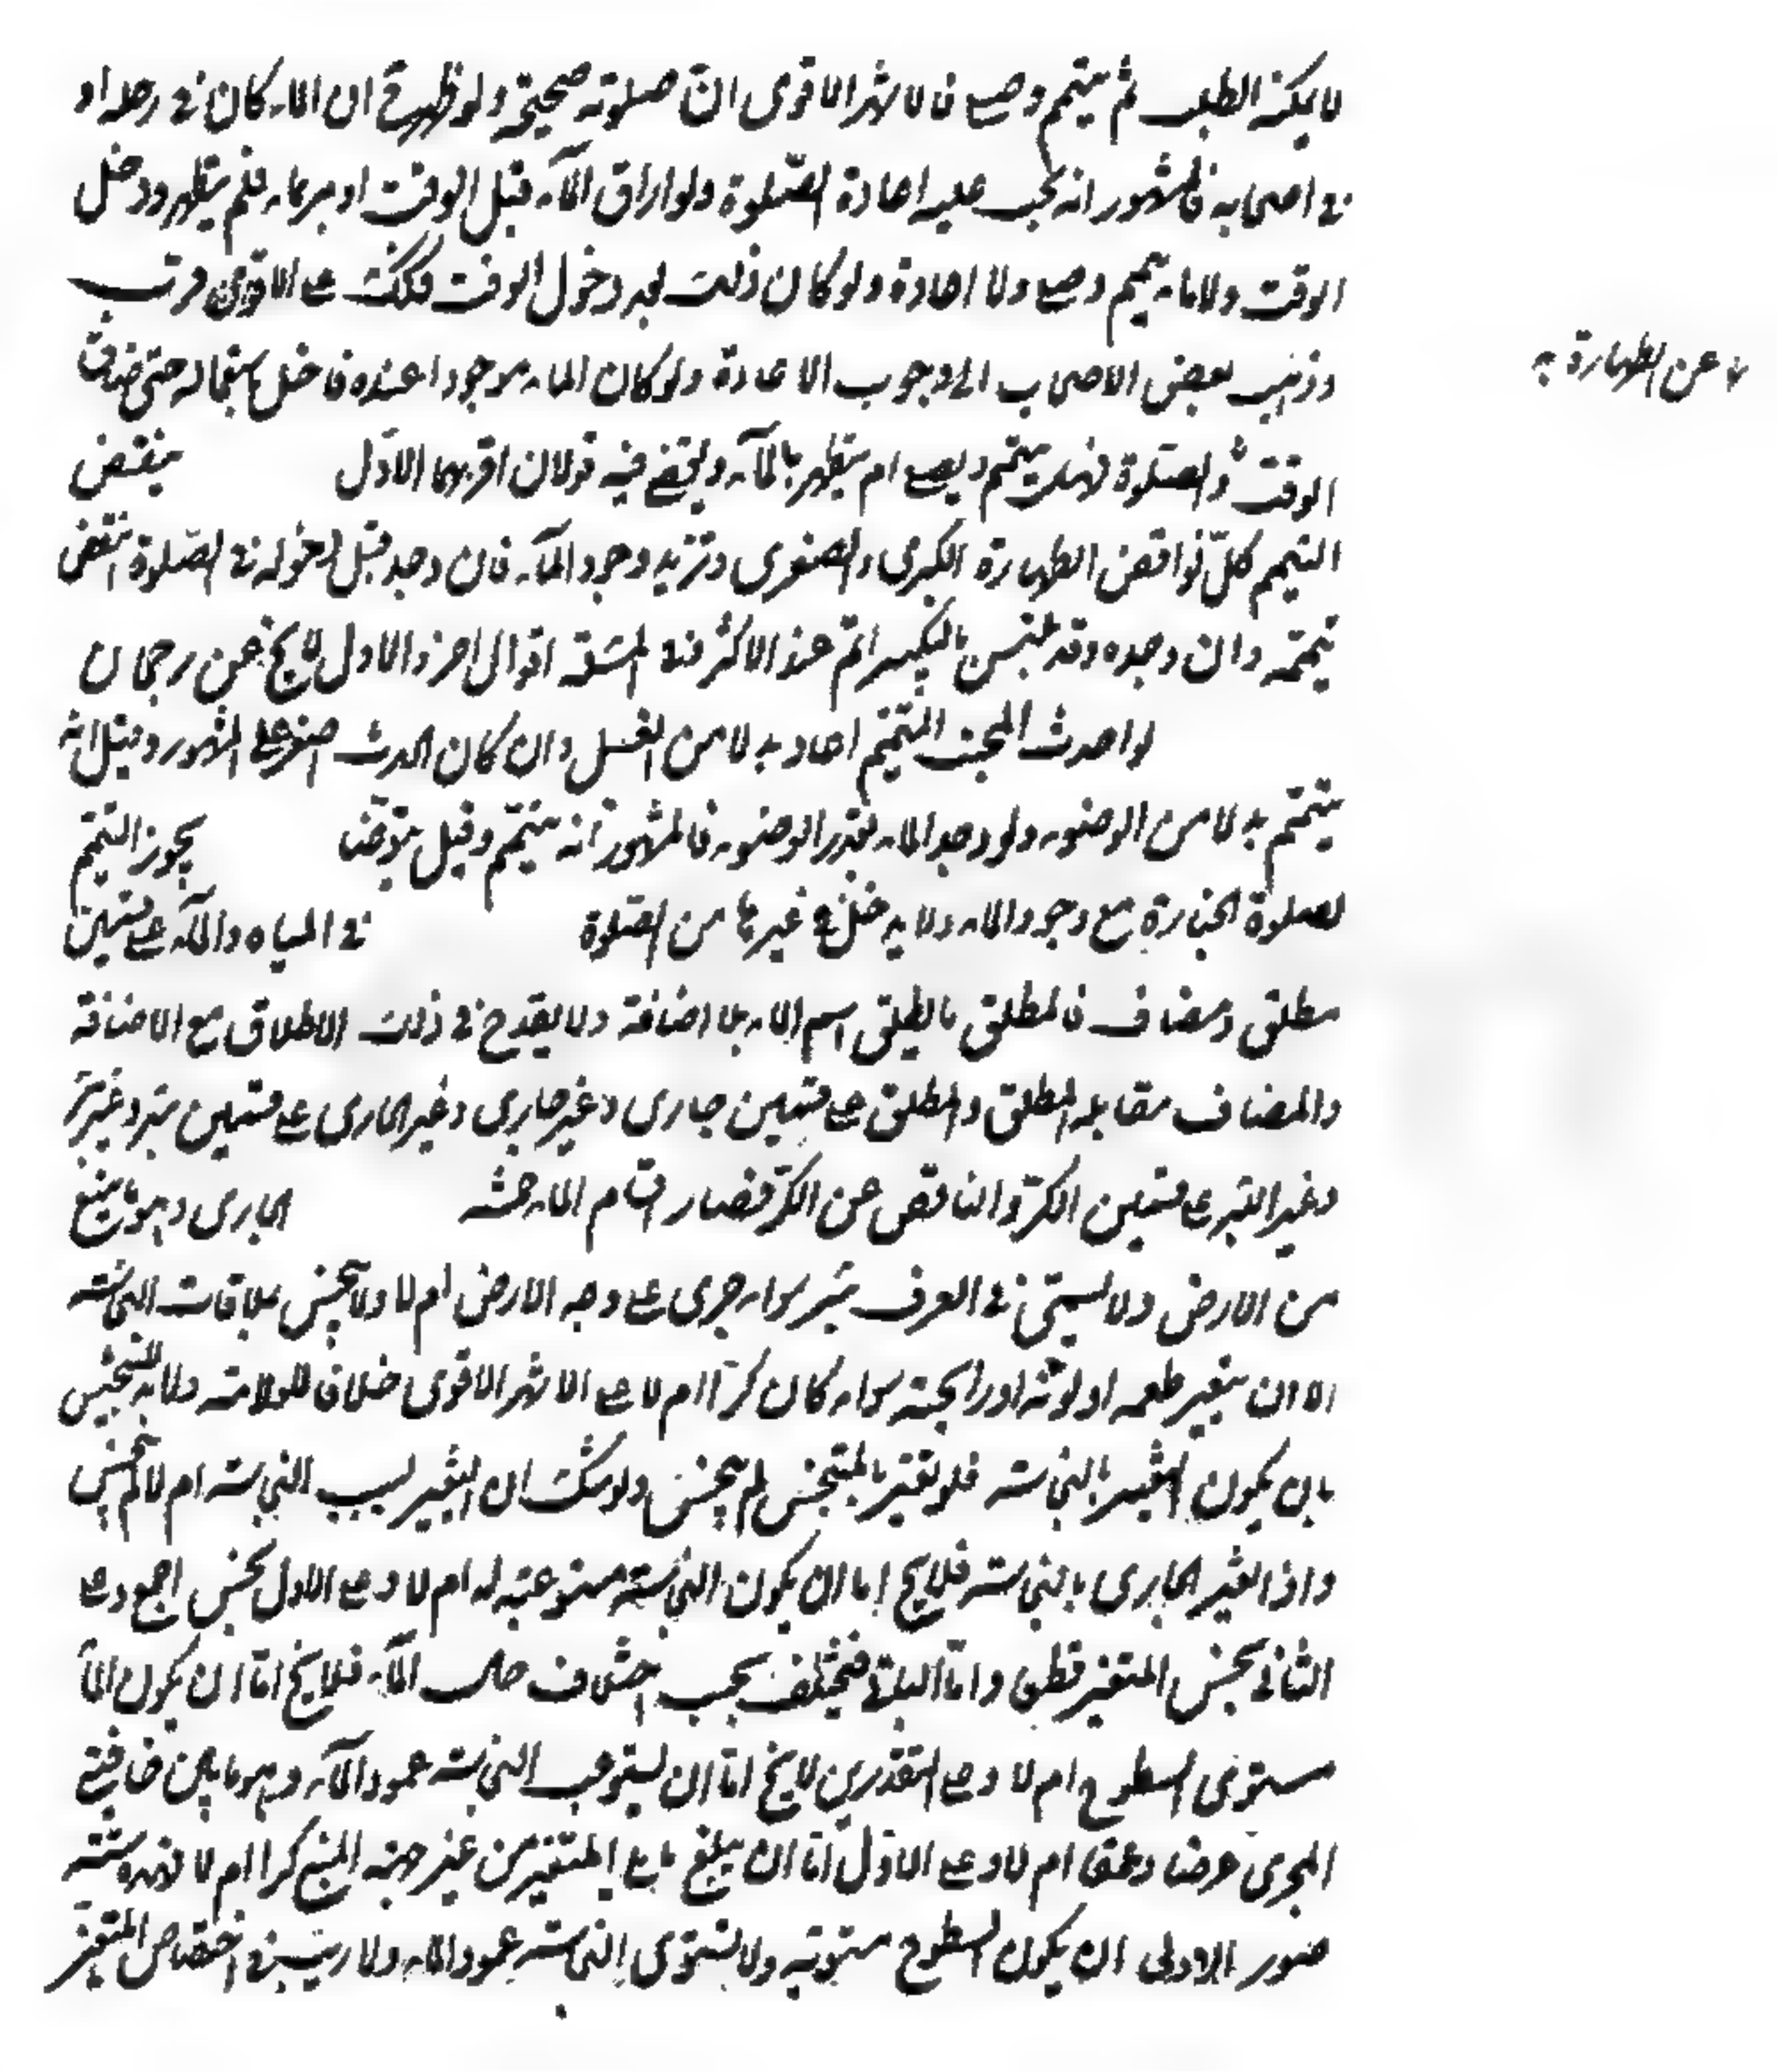 لا يمكنه الطلب ثم يتيمم وصلى فالاشهر الاقوى ان صلوته صحيحة ولو ظهر ان الماء كان في رحله او
في اصحابه فالمشهور انه يجب عليه اعادة الصلوة ولو اراق الماء قبل الوقت او مر بماء فلم يتطهر ودخل
الوقت ولا ماء تيمم وصلى ولا اعادة ولو كان ذلك بعد دخول الوقت فكك على الاقوى
وذهب بعض الاصحاب الى وجوب الاعادة ولو كان الماء موجودا عنده فاخل باستعماله حتى ضاق
ع عن الطهارة به
الوقت والصلوة فهل يتيمم ويصلي ام يتطهر بالماء ويقضي فيه قولان اقربهما الاول ينقض
التيمم كل نواقض الطهارة الكبرى والصغرى وتزيد وجود الماء فان وجد قبل دخوله في الصلوة انتقض
تيممه وان وجده وقد تلبس بالتكبير اتم عند الاكثر وفي المسئلة اقوال اخر والاول لا يخ عن رجحان
لو احدث المجنب المتيمم اعاد بدلا من الغسل وان كان الحدث اصغر على المشهور وقيل انه
يتيمم بدلا من الوضوء ولو وجد الماء بقدر الوضوء فالمشهور انه يتيمم وقيل يتوضأ يجوز التيمم
لصلوة الجنازة مع وجود الماء ولا يدخل في غيرها من الصلوة في المياه والماء على قسمين
مطلق ومضاف فالمطلق ما يطلق اسم الماء بلا اضافة ولا يقدح في ذلك الاطلاق مع الاضافة
والمضاف مقابله المطلق والمطلق على قسمين جاري وغير جاري وغير الجاري على قسمين بئر وغير بئر
وغير البئر على قسمين الكر والناقص عن الكر فصار اقسام الماء خمسة الجاري وهو ما ينبع
من الارض ولا يسمى في العرف بئر سواء جرى على وجه الارض ام لا ولا ينجس بملاقات النجاسة
الا ان يتغير طعمه او لونه او رايحته سواء كان كرا ام لا على الاشهر الاقوى خلافا للعلامة ولا بد للتنجيس
بان يكون التغير بالنجاسة فلو تغير بالمتنجس لم ينجس ولو شك ان التغير بسبب النجاسة ام لا لم ينجس
واذا تغير الجاري بالنجاسة فلا يخ اما ان يكون النجاسة مستوعبة له ام لا وعلى الاول نجس اجمع وعلى
الثاني نجس المتغير قطعا واما الباقي فيختلف بحسب اختلاف حال الماء فلا يخ اما ان يكون الماء
مستوى السطوح ام لا وعلى التقديرين لا يخ اما ان يستوعب النجاسة عمود الماء وهو ما بين حافتي
المجرى عرضا وعمقا ام لا وعلى الاول اما ان يبلغ باقي المتغير من غير جهة المنبع كرا ام لا فهذه ستة
صور الاولى ان يكون السطوح مستوية ولا يستوعب النجاسة عمود الماء ولا ريب في اختصاص المتغير